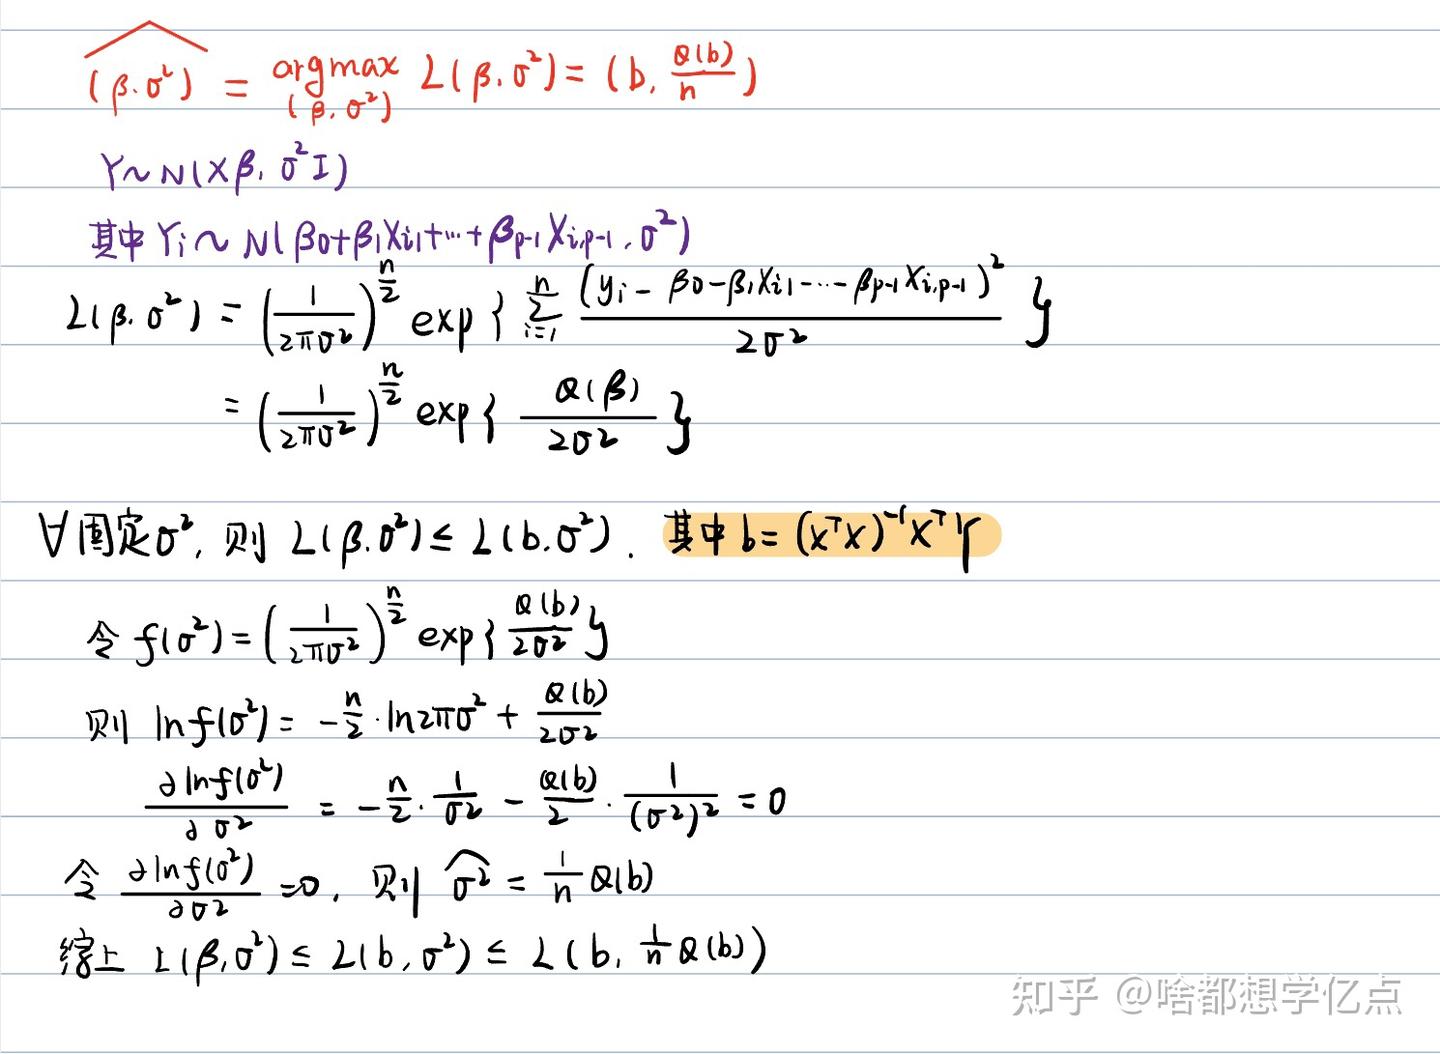 (β.σ²)^ = argmax_(β,σ²) L(β,σ²) = (b, Q(b)/n)
Y~N(Xβ, σ²I)
其中 Yi ~ N(β0+β1Xi,1+…+βp-1Xi,p-1, σ²)
L(β,σ²) = (1/2πσ²)^(n/2) exp{ Σ_{i=1}^{n} (yi - β0 - β1Xi1 - … - βp-1Xi,p-1)² / 2σ² }
= (1/2πσ²)^(n/2) exp{ Q(β) / 2σ² }
∀固定σ², 则 L(β,σ²) ≤ L(b,σ²). 其中 b = (XᵀX)⁻¹XᵀY
令 f(σ²) = (1/2πσ²)^(n/2) exp{ Q(b) / 2σ² }
则 lnf(σ²) = -n/2 · ln2πσ² + Q(b)/2σ²
∂lnf(σ²)/∂σ² = -n/2 · 1/σ² - Q(b)/2 · 1/(σ²)² = 0
令 ∂lnf(σ²)/∂σ² = 0, 则 σ²^ = 1/n Q(b)
综上 L(β,σ²) ≤ L(b,σ²) ≤ L(b, 1/n Q(b))
知乎 @啥都想学亿点